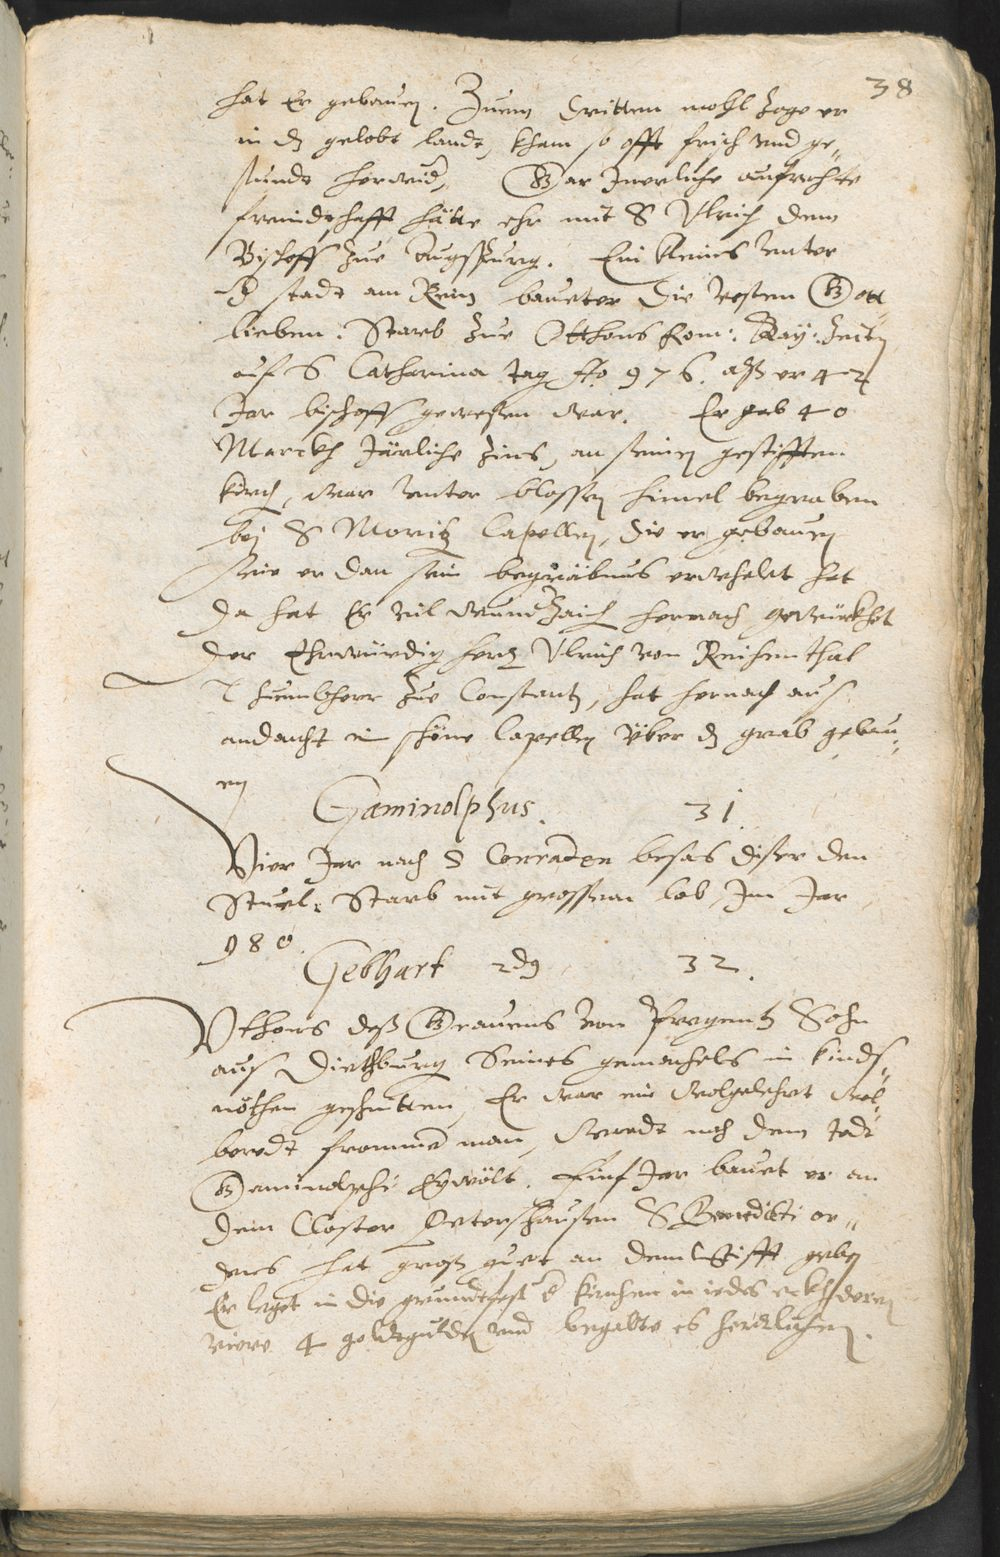 38
hat Er gebauen. Zuem dritten mohl zoge er
in dz gelobt lande, kham so offt frisch vnd ge„
sunde herwid, Gar Innerliche aufrechte
freindschafft hätte ehr mit S Vlrich dem
Bischoff zue Augspurg. Ein kleins vnter
d stadt am Rein bauet er die vesten Gott„
lieben: Starb zue Otthons Rom: Kay: Zeiten
auf S Catharina tag Ao 976. alß er 42
Jar bischoff gewesen war. Er gab 40
Marckh Järliche Zins, an seinen gestifften
kirch, war vnter blossen himel begraben
bej S Moritz Capellen, die er gebauen
wie er dan sein begräbnus erwehelt hat
da hat Er vil wunderzaich hernach gewürkhet
der Ehrwürdig herr Vlrich von Reihenthal
Thuembherr zue Constantz, hat hernach aus
andacht ein schöne Capellen Vber dz grab gebau„
en
Gaminolphus. 31
Vier Jar nach S Conraden besas diser den
Stuel: Starb mit grossem lob, Im Jar
980.
Gebhart 2dg 32.
Vthons deß Grauens von Pregentz Sohn
aus Diethburg Seines gemachels in kinds„
nöthen geschnitten, Er war ein wolgelehrt wol„
beredt fromme man, Wardt nach dem todt
Gaminolphi Erwölt. Finf Jar bauet er an
dem Closter Petershausen S Benedicti or„
dens hat gross guet an dem Stifft geben
Er leget in die grundtfest d kirchen in iedes eckh deren
viere 4 goldtgulden vnd begabte es herrlichen.